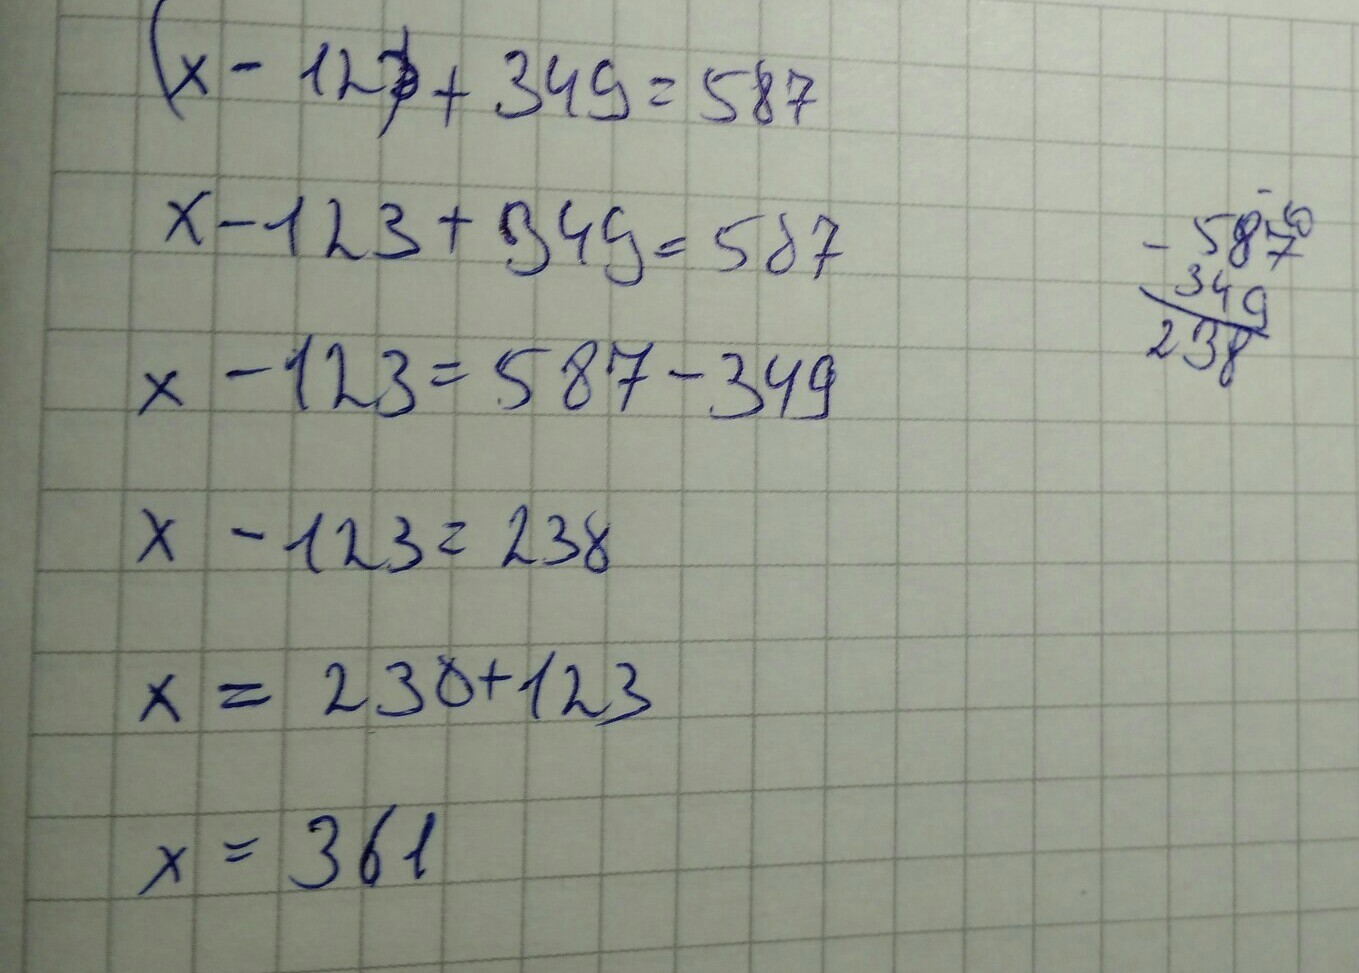 (x - 123) + 349 = 587
x - 123 + 349 = 587
x - 123 = 587 - 349
x - 123 = 238
x = 238 + 123
x = 361
- 587
349
238